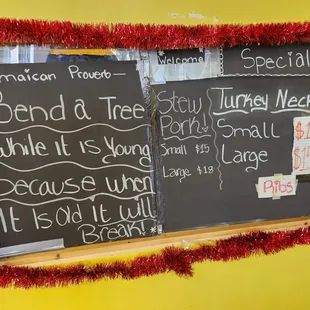 Jamaican Proverb —
Bend a Tree
While it is Young
Because when
It Is Old It will
Break!
Welcome
Stew
Pork
Small $15
Large $18
Special
Turkey Neck
Small
Large
RIBS